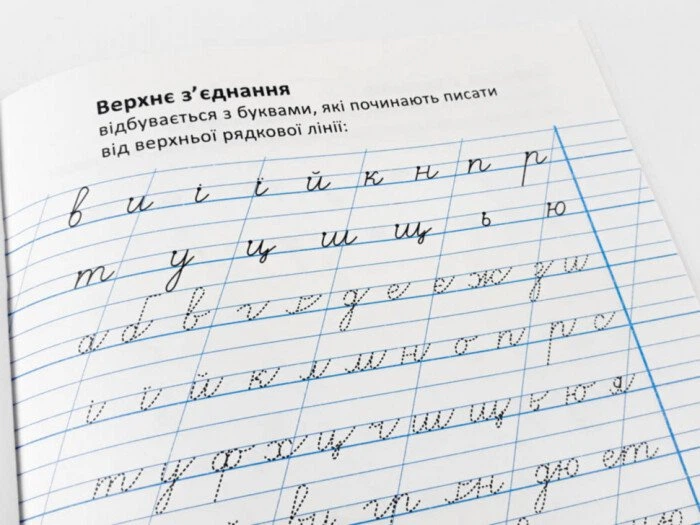 Верхнє з’єднання
відбувається з буквами, які починають писати
від верхньої рядкової лінії:
в и і ї й к н п р
т у ц ш щ ь ю
а б в г е д е є ж з и
і ї й к л м н о п р с
т у ф х ц ч ш щ ь ю я
ви гр лн дю ет